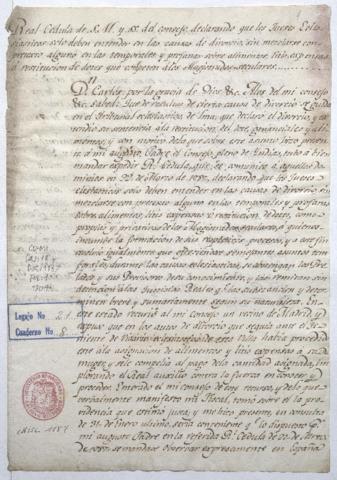 Real Cedula de S. M. y SS. del consejo, declarando que los Jueces Ecle-
siasticos solo deben entender en las causas de divorcio, sin mezclarse con
pretexto alguno en las temporales y profanas sobre alimentos, litis expensas
o restitucion de dotes que competen a los Magistrados seculares
Dn Carlos por la gracia de Dios &c. A los del mi consejo
&c. Sabed: Que de resultas de cierta causa de divorcio seguida
en el tribunal eclesiastico de Lima, que declaró el divorcio y ex-
tendió su sentencia a la restitucion del dote, gananciales y ali-
mentos, y con motivo de lo que sobre este asunto hizo presen-
te a mi augusto Padre el consejo pleno de Indias, tubo a bien
mandar expedir Rl Cedula
en 22 de Marzo de 1787, declarando que los Jueces
eclesiasticos solo deben entender en las causas de divorcio sin
mezclarse con pretexto alguno en las temporales y profanas
sobre alimentos, litis expensas o restitucion de dotes, como
propias y privativas de los Magistrados seculares, a quienes
incumbe la formacion de sus respectivos procesos, y a este fin
igualmente que ofreciendose semejantes asuntos tem-
porales durante las causas eclesiasticas, se abstengan los Pre-
lados y sus Provisores de su conocimiento, y los remitan sin
detencion a las Justicias Reales que las substancien y deter-
minen breve y sumariamente segun su naturaleza. En
este estado recurrió al mi consejo un vecino de Madrid y
expuso que en los autos de divorcio que seguia ante el The-
niente de Vicario eclesiastico de esta Villa habia procedido
este a la asignacion de alimentos y litis expensas a su
muger, y se le compelia al pago de la cantidad asignada, im-
plorando el Real auxilio contra la fuerza en conocer y
proceder. Enterado el mi consejo de este recurso, y de lo que
verbalmente manifestó mi Fiscal, tomó sobre el la pro-
videncia que estimó justa, y me hizo presente, en consulta
de 31 de Enero ultimo, seria conveniente que lo dispuesto por
mi augusto Padre en la referida Rl Cedula de 22 de Marzo
de 1787 se mandase observar expresamente en España
Legajo No 21.
Cuaderno No 8.